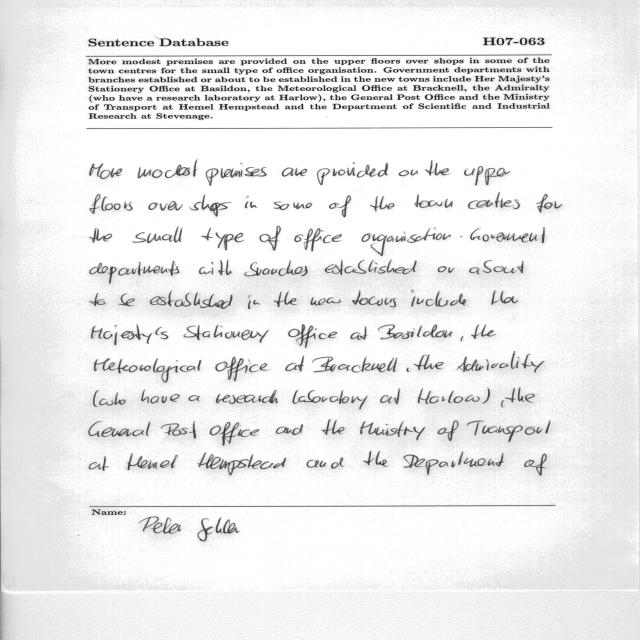 Sentence Database H07-063
More modest premises are provided on the upper floors over shops in some of the
town centres for the small type of office organisation. Government departments with
branches established or about to be established in the new towns include Her Majesty's
Stationery Office at Basildon, the Meteorological Office at Bracknell, the Admiralty
(who have a research laboratory at Harlow), the General Post Office and the Ministry
of Transport at Hemel Hempstead and the Department of Scientific and Industrial
Research at Stevenage.
More modest premises are provided on the upper
floors over shops in some of the town centres for
the small type of office organisation. Goverment
departments with branches established or about
to be established in the new towns include Her
Majesty's Stationery Office at Basildon, the
Meteorological Office at Bracknell, the Admirality
(who have a research laboratory at Harlow), the
General Post Office and the Ministry of Transport
at Hemel Hempstead and the Department of
Name:
Peter